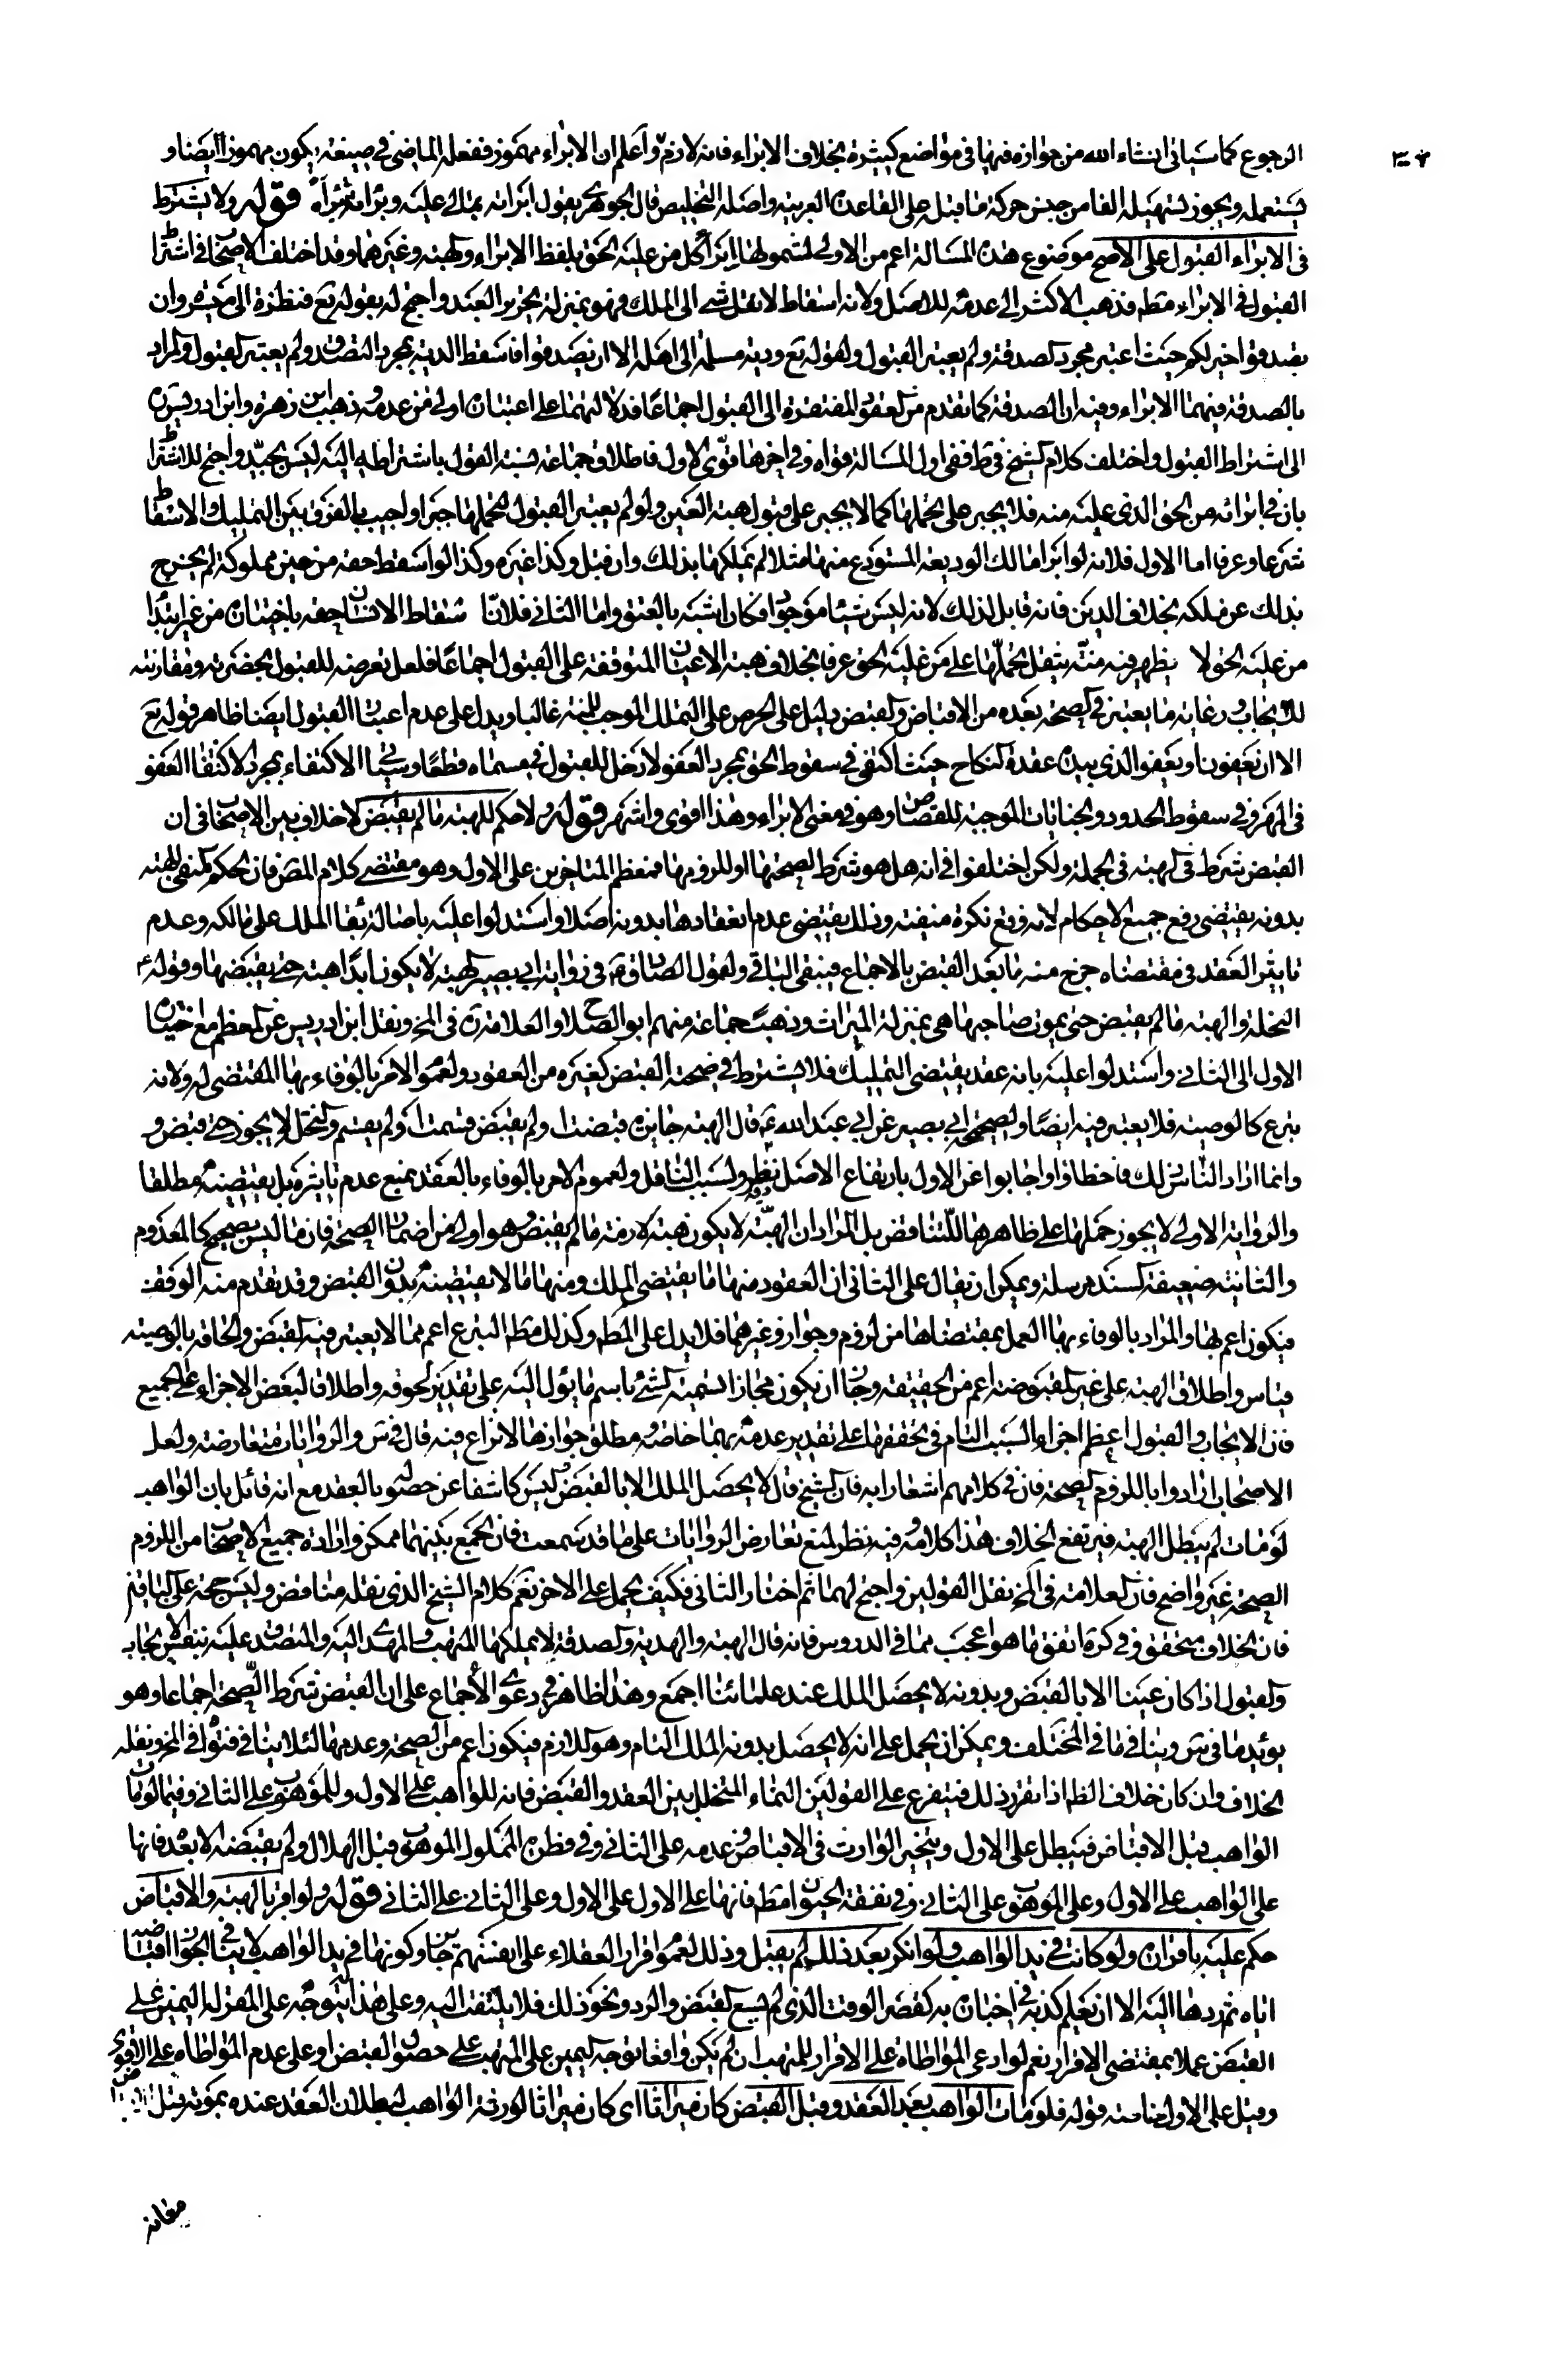 الرجوع كما سياتى انشاء الله من جوازه فيها فى مواضع كثيرة بخلاف الابراء فانه لازم واعلم ان الابراء مهموز ففعله الماضى فى صيغته يكون مهموزا ايضا و
يستعمله ويجوز تسهيله الفا من جنس حركة ما قبله على القاعدة العربية واصله التخليص قال الجوهرى يقول ابراته بمالى عليه وبراته تبرأة قوله ولا يشترط
فى الابراء القبول على الاصح موضوع هذه المسالة اعم من الاولى لشمولها ابراء كل من عليه الحق بلفظ الابراء والهبة وغيرهما وقد اختلف الاصحاب فى اشتراط
القبول فى الابراء مط فذهب الاكثر الى عدمه للاصل ولانه اسقاط لا نقل شئ الى الملك فهو بمنزلة تحرير العبد واحتج له بقوله تع فنظرة الى ميسرة وان
تصدقوا خير لكم حيث اعتبر مجرد الصدقة ولم يعتبر القبول ولقوله تع ودية مسلمة الى اهله الا ان يصدقوا فاسقط الدية بمجرد التصدق ولم يعتبر القبول والمراد
بالصدقة فيهما الابراء وفيه ان الصدقة كما تقدم من العقود المفتقرة الى القبول اجماعا فدلالتهما على اعتباره اولى من عدمه وذهب ابن زهرة وابن ادريس
الى اشتراط القبول واختلف كلام الشيخ فى ط ففى اول المسالة قواه وفى اخرها قوى الاول فاطلاق جماعة نسبة القول باشتراطه اليه ليس بجيد واحتج للاشتراط
بان فى ابرائه من الحق الذى عليه منه فلا يجبر على تحملها كما لا يجبر على قبول هبة العين ولو لم يعتبر القبول لتحملها جبرا واجيب بالفرق بين التمليك والاسقاط
شرعا وعرفا اما الاول فلانه لو ابرا مالك الوديعة المستودع منها مثلا لم يملكها بذلك وان قبل وكذا غيره وكذا لو اسقط حقه من عين مملوكة لم يخرج
بذلك عن ملكه بخلاف الدين فانه قابل لذلك لانه ليس شيئا موجودا فكان اشبه بالعتق واما الثانى فلان اسقاط الانسان حقه باختياره من غير ابتداء
من عليه الحق لا يظهر فيه منة يثقل تحملها على من عليه الحق عرفا بخلاف هبة الاعيان المتوقفة على القبول اجماعا فلعل تعرضه للقبول بحضرته ومقارنته
للايجاب ورعاية ما يعتبر فى الصحة بعده من الاقباض والقبض دليل على الحرص على التملك الموجب للمنة غالبا ويدل على عدم اعتبار القبول ايضا ظاهر قوله تع
الا ان يعفون او يعفو الذى بيده عقدة النكاح حيث اكتفى فى سقوط الحق بمجرد العفو ولا دخل للقبول فى مسماه قطعا وسياتى الاكتفاء بمجرد العفو
فى المهر وفى سقوط الحدود والجنايات الموجبة للقصاص وهو فى معنى الابراء وهذا اقوى واشهر قوله ولا حكم للهبة ما لم يقبض لا خلاف بين الاصحاب فى ان
القبض شرط فى الهبة فى الجملة ولكن اختلفوا فى انه هل هو شرط لصحتها او للزومها فمعظم المتاخرين على الاول وهو مقتضى كلام المص فان الحكم المنفى للهبة
بدونه يقتضى رفع جميع الاحكام لانه وقع نكرة منفية وذلك يقتضى عدم انعقادها بدونه اصلا واستدلوا عليه باصالة بقاء الملك على مالكه وعدم
تاثير العقد فى مقتضاه خرج منه ما بعد القبض بالاجماع فيبقى الباقى ولقول الصادق ع فى رواية ابى بصير الهبة لا يكون ابدا هبة حتى يقبضها وقوله ع
النحلة والهبة ما لم يقبض حتى يموت صاحبها هى بمنزلة الميراث وذهب جماعة منهم ابو الصلاح والعلامة ره فى المخ ونقل ابن ادريس عن المعظم مع اختياره
الاول الى الثانى واستدلوا عليه بانه عقد يقتضى التمليك فلا يشترط فى صحته القبض كغيره من العقود ولعموم الامر بالوفاء بها المقتضى له ولانه
تبرع كالوصية فلا يعتبر فيه ايضا ولصحيحة ابى بصير عن ابى عبد الله ع قال الهبة جايزة قبضت او لم يقبض قسمت او لم يقسم والنحل لا يجوز حتى تقبض و
وانما اراد الناس ذلك فاخطاوا واجابوا عن الاول بارتفاع الاصل نظرا ولسبب الناقل ولعموم الامر بالوفاء بالعقد يمنع عدم تاثيره بل يقتضيه مطلقا
والرواية الاولى لا يجوز حملها على ظاهرها للتناقض بل المراد ان الهبة لا يكون هبة لازمة ما لم يقبض وهو اولى من اضمار الصحة فان ما ليس بصحيح كالمعدوم
والثانية ضعيفة السند مرسلة ويمكن ان يقال على الثانى ان العقود منها ما يقتضى الملك ومنها ما لا يقتضيه بدون القبض وقد تقدم منه الوقف
فيكون اعم لها والمراد بالوفاء بها العمل بمقتضاها من لزوم وجواز وغيرهما فلا يدل على المط وكذلك مط التبرع اعم مما لا يعتبر فيه القبض والحاقه بالوصية
قياس واطلاق الهبة على غير المقبوضة اعم من الحقيقة وجاز ان يكون مجازا لتسمية الشئ باسم ما يؤل اليه على تقدير لحوقه واطلاقا لبعض الاجزاء على الجميع
فان الايجاب والقبول اعظم اجزاء السبب التام فى تحققها على تقدير عدمه بهما خاصة ومطلق جوازها لا نزاع فيه قال فى س والروايات متعارضة ولعل
الاصحاب ارادوا باللزوم الصحة فان فى كلامهم اشعارا به فان الشيخ قال لا يحصل الملك الا بالقبض وليس كاشفا عن حصوله بالعقد مع انه قائل بان الواهب
لو مات لم يبطل الهبة فيرتفع الخلاف هذا كلامه وفيه نظر لمنع تعارض الروايات على ما قد سمعت فان الجمع بينهما ممكن وارادة جميع الاصحاب من اللزوم
الصحة غير واضح فان العلامة فى المخ نقل القولين واحتج لهما ثم اختار الثانى فكيف يحمل على الاخر نعم كلام الشيخ الذى نقله متناقض وليس حجة على الباقين
فان الخلاف متحقق وفى كرة اتفق ما هو اعجب مما فى الدروس فانه قال الهبة والهدية والصدقة لا يملكها المتهب والمهدى اليه والمتصدق عليه بنفس الايجاب
والقبول اذا كان عينا الا بالقبض وبدونه لا يحصل الملك عند علمائنا اجمع وهذا ظاهر فى دعوى الاجماع على ان القبض شرط الصحة اجماعا وهو
يؤيد ما فى س وينافى ما فى المختلف ويمكن ان يحمل على انه لا يحصل بدونه الملك التام وهو اللازم فيكون اعم من الصحة وعدمها لئلا ينافى فتواه فى المخ ونقله
الخلاف وان كان خلاف الظ اذا تقرر ذلك فيتفرع على القولين النماء المتخلل بين العقد والقبض فانه للواهب على الاول وللموهوب على الثانى وفيما لو مات
الواهب قبل الاقباض فيبطل على الاول ويتخير الوارث فى الاقباض وعدمه على الثانى وفى فطرة المملوك الموهوب قبل الهلال ولم يقبضه الا بعده فانها
على الواهب على الاول وعلى الموهوب على الثانى وفى نفقة الحيوان مط فانها على الاول على الاول وعلى الثانى على الثانى قوله ولو اقر بالهبة والاقباض
حكم عليه باقراره ولو كانت فى يد الواهب ولو انكر بعد ذلك لم يقبل وذلك لعموم اقرار العقلاء على انفسهم جايز وكونها فى يد الواهب لا ينافى لجواز اقباضه
اياه ثم ردها اليه الا ان يعلم كذبه فى اخباره به كقصر الوقت الذى لم يسع القبض والرد ونحو ذلك فلا يلتفت اليه وعلى هذا يتوجه على المقر له اليمين على
القبض عملا بمقتضى الاقرار نعم لو ادعى المواطاة على الاقرار للمتهب ان لم يكن واقعا توجه اليمين على المتهب على حصول القبض او على عدم المواطاة على الاقوى
وقيل على الاول خاصة قوله فلو مات الواهب بعد العقد وقبل القبض كان ميراثا اى كان ميراثا لورثة الواهب لبطلان العقد عنده بموته قبل